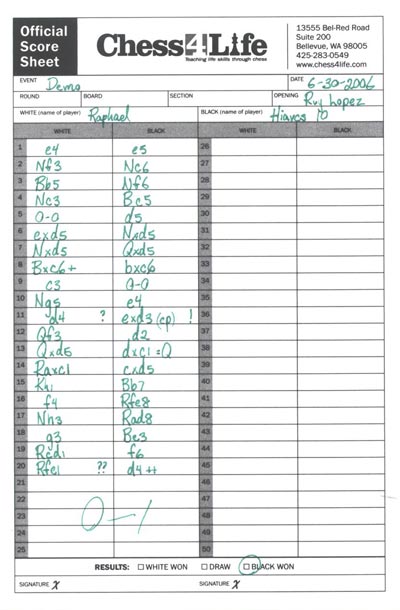 Official Score Sheet
Chess4Life
Teaching life skills through chess
13555 Bel-Red Road
Suite 200
Bellevue, WA 98005
425-283-0549
www.chess4life.com
EVENT Demo DATE 6-30-2006
ROUND BOARD SECTION OPENING Ruy Lopez
WHITE (name of player) Raphael BLACK (name of player) Hiarcs 10
WHITE BLACK WHITE BLACK
1 e4 e5 26
2 Nf3 Nc6 27
3 Bb5 Nf6 28
4 Nc3 Bc5 29
5 0-0 d5 30
6 exd5 Nxd5 31
7 Nxd5 Qxd5 32
8 Bxc6+ bxc6 33
9 c3 0-0 34
10 Ng5 e4 35
11 d4 ? exd3 (ep) ! 36
12 Qf3 d2 37
13 Qxd5 dxc1=Q 38
14 Raxc1 cxd5 39
15 Kh1 Bb7 40
16 f4 Rfe8 41
17 Nh3 Rad8 42
18 g3 Be3 43
19 Rcd1 f6 44
20 Rfe1 ?? d4++ 45
21 46
22 47
23 48
24 49
25 50
0-1
RESULTS: WHITE WON DRAW BLACK WON
SIGNATURE X SIGNATURE X